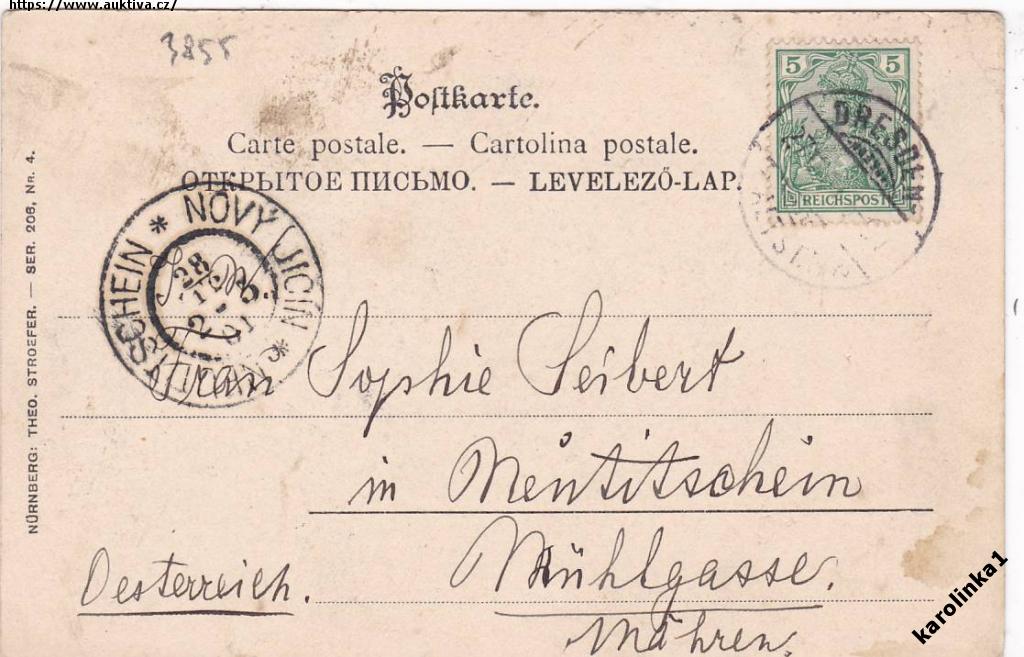 https://www.auktiva.cz/
3855
Postkarte.
Carte postale. — Cartolina postale.
ОТКРЫТОЕ ПИСЬМО. — LEVELEZŐ-LAP.
5 5
REICHSPOST
DRESDEN
ALTSTADT
NOVÝ JIČÍN * NEUTITSCHEIN *
28
NÜRNBERG: THEO. STROEFER. — SER. 206, Nr. 4.
Frau Sophie Seibert
in Neutitschein
Mühlgasse.
Oesterreich.
Mähren.
karolinka1